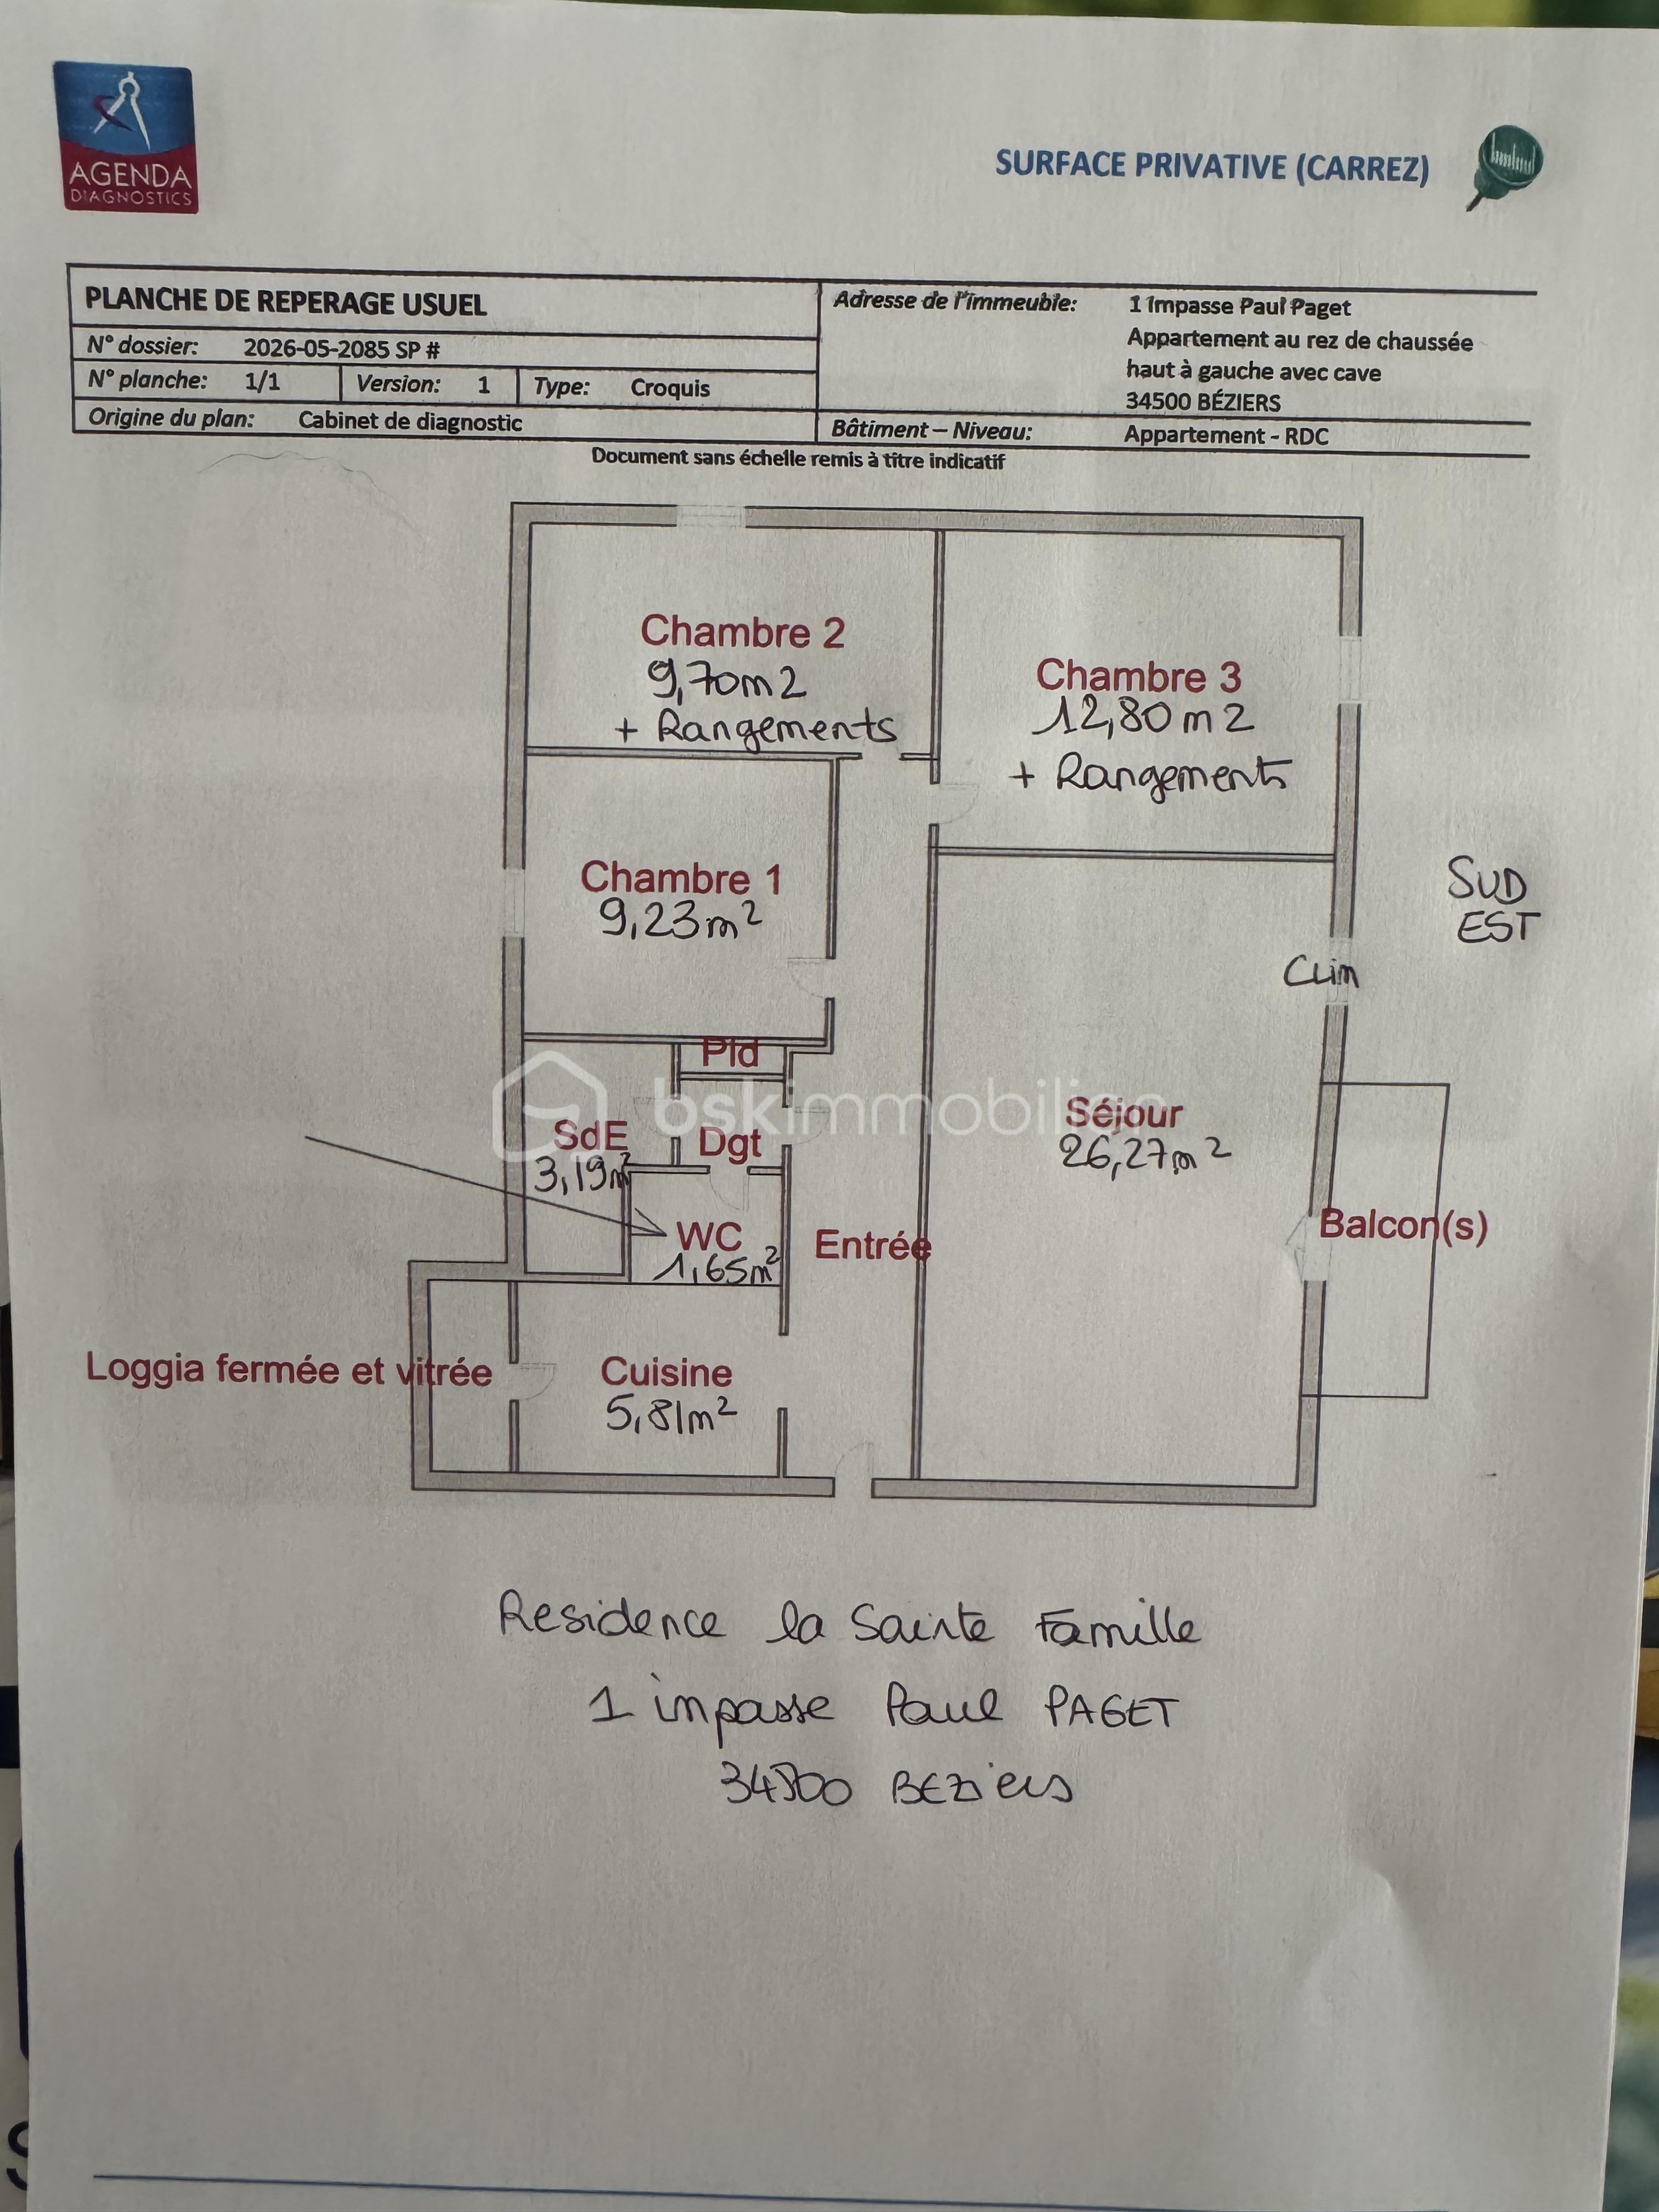 AGENDA
DIAGNOSTICS
SURFACE PRIVATIVE (CARREZ)
PLANCHE DE REPERAGE USUEL
N° dossier: 2026-05-2085 SP #
N° planche: 1/1 Version: 1 Type: Croquis
Origine du plan: Cabinet de diagnostic
Adresse de l'immeuble: 1 Impasse Paul Paget
Appartement au rez de chaussée
haut à gauche avec cave
34500 BÉZIERS
Bâtiment – Niveau: Appartement - RDC
Document sans échelle remis à titre indicatif
Chambre 2
9,70m2
+ Rangements
Chambre 3
12,80m2
+ Rangements
Chambre 1
9,23m²
SUD
EST
Clim
Pld
bskimmobilier
SdE
3,19m²
Dgt
Séjour
26,27m²
WC
1,65m²
Entrée
Balcon(s)
Loggia fermée et vitrée
Cuisine
5,81m²
Residence la Sainte Famille
1 impasse Paul PAGET
34500 BEZiers